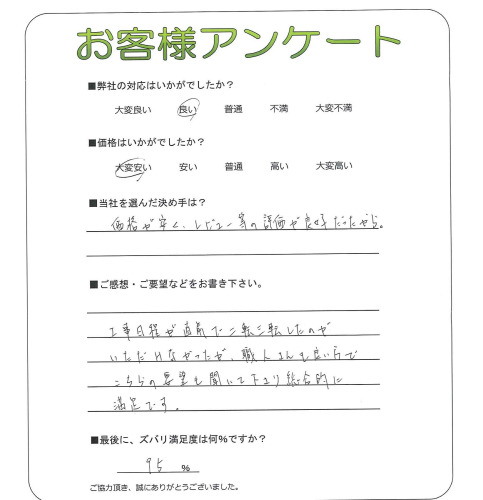 お客様アンケート
■弊社の対応はいかがでしたか？
大変良い 良い 普通 不満 大変不満
■価格はいかがでしたか？
大変安い 安い 普通 高い 大変高い
■当社を選んだ決め手は？
価格が安く、レビュー等の評価が良好だったから。
■ご感想・ご要望などをお書き下さい。
工事日程が直前で二転三転したのが
いただけなかったが、職人さんも良い方で
こちらの要望も聞いて下さり総合的に
満足です。
■最後に、ズバリ満足度は何%ですか？
95 %
ご協力頂き、誠にありがとうございました。